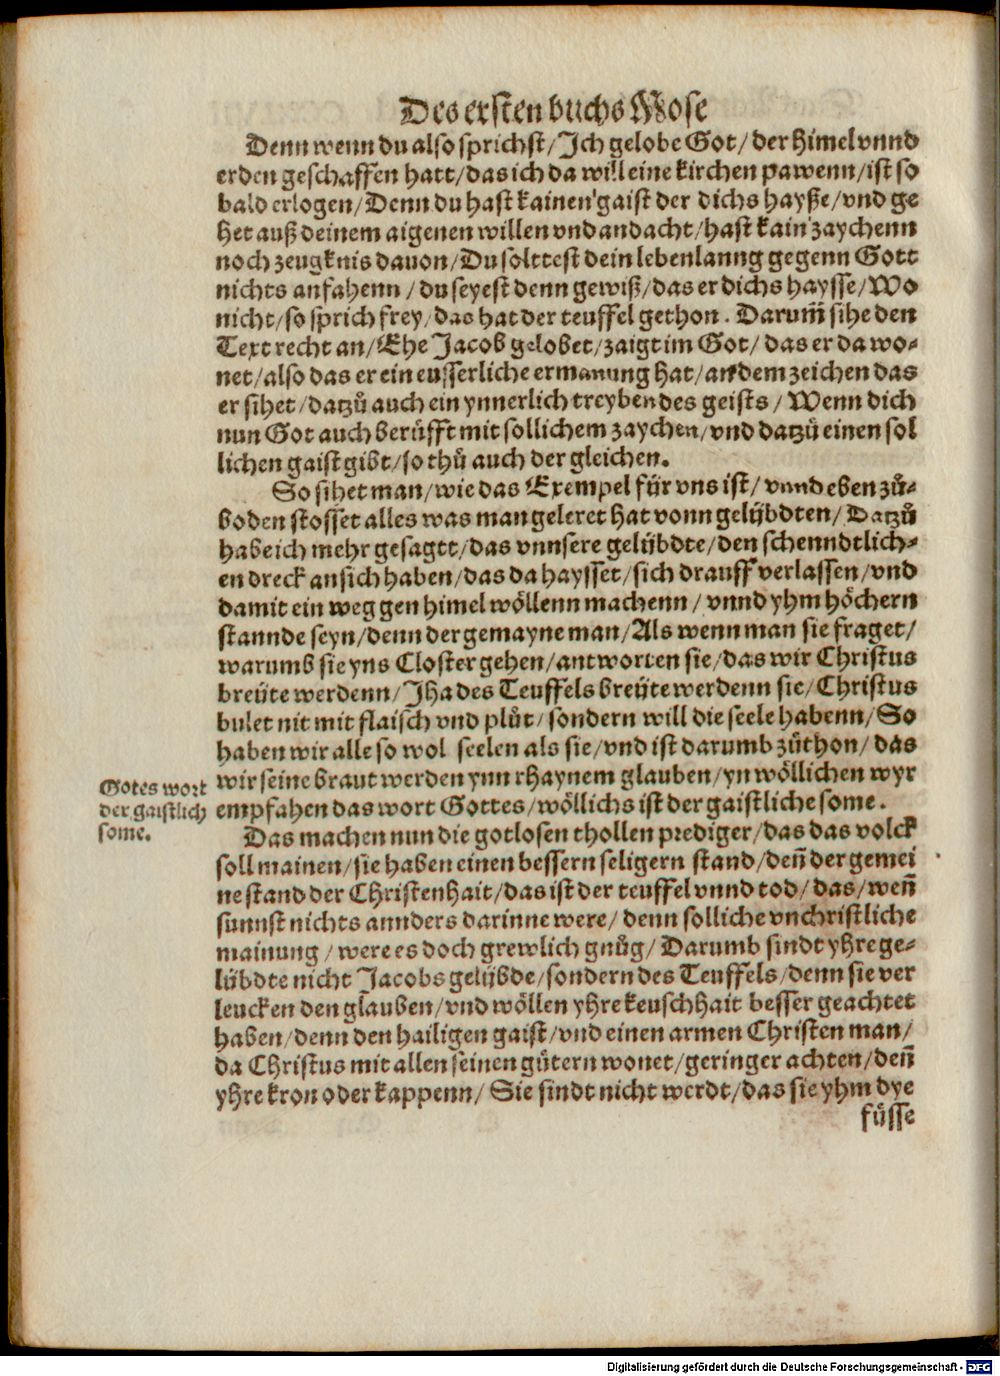 Des ersten buchs Mose
Denn wenn du also sprichst/ Jch gelobe Got/ der himel vnnd
erden geschaffen hatt/ das ich da will eine kirchen pawenn/ ist so
bald erlogen/ Denn du hast kainen gaist der dichs hayße/ vnd ge
het auß deinem aigenen willen vnd andacht/ hast kain zaychenn
noch zeugknis dauon/ Du solttest dein lebenlanng gegenn Gott
nichts anfahenn/ du seyest denn gewiß/ das er dichs haysse/ Wo
nicht/ so sprich frey/ das hat der teuffel gethon. Darum̃ sihe den
Text recht an/ Ehe Jacob gelobet/ zaigt im Got/ das er da wo-
net/ also das er ein eusserliche ermanung hat/ an dem zeichen das
er sihet/ datzů auch ein ynnerlich treyben des geists/ Wenn dich
nun Got auch berůfft mit sollichem zaychen/ vnd datzů einen sol
lichen gaist gibt/ so thů auch der gleichen.
So sihet man/ wie das Exempel für vns ist/ vnnd eben zů-
boden stosset alles was man geleret hat vonn gelübdten/ Datzů
habe ich mehr gesagtt/ das vnnsere gelübdte/ den schenndtlich-
en dreck an sich haben/ das da haysset/ sich drauff verlassen/ vnd
damit ein weg gen himel wöllenn machenn/ vnnd yhm höchern
stannde seyn/ denn der gemayne man/ Als wenn man sie fraget/
warumb sie yns Closter gehen/ antworten sie/ das wir Christus
breüte werdenn/ Jha des Teuffels breüte werdenn sie/ Christus
bulet nit mit flaisch vnd plůt/ sondern will die seele habenn/ So
haben wir alle so wol seelen als sie/ vnd ist darumb zůthon/ das
wir seine braut werden ynn rhaynem glauben/ yn wöllichen wyr
empfahen das wort Gottes/ wöllichs ist der gaistliche some.
Gotes wort
der gaistlich
some.
Das machen nun die gotlosen thollen prediger/ das das volck
soll mainen/ sie haben einen bessern seligern stand/ deñ der gemei
ne stand der Christenhait/ das ist der teuffel vnnd tod/ das/ weñ
sunnst nichts annders darinne were/ denn solliche vnchristliche
mainung/ were es doch grewlich gnůg/ Darumb sindt yhre ge-
lübdte nicht Jacobs gelübde/ sondern des Teuffels/ denn sie ver
leucken den glauben/ vnd wöllen yhre keuschhait besser geachtet
haben/ denn den hailigen gaist/ vnd einen armen Christen man/
da Christus mit allen seinen gütern wonet/ geringer achten/ deñ
yhre kron oder kappenn/ Sie sindt nicht werdt/ das sie yhm dye
füsse
Digitalisierung gefördert durch die Deutsche Forschungsgemeinschaft - DFG